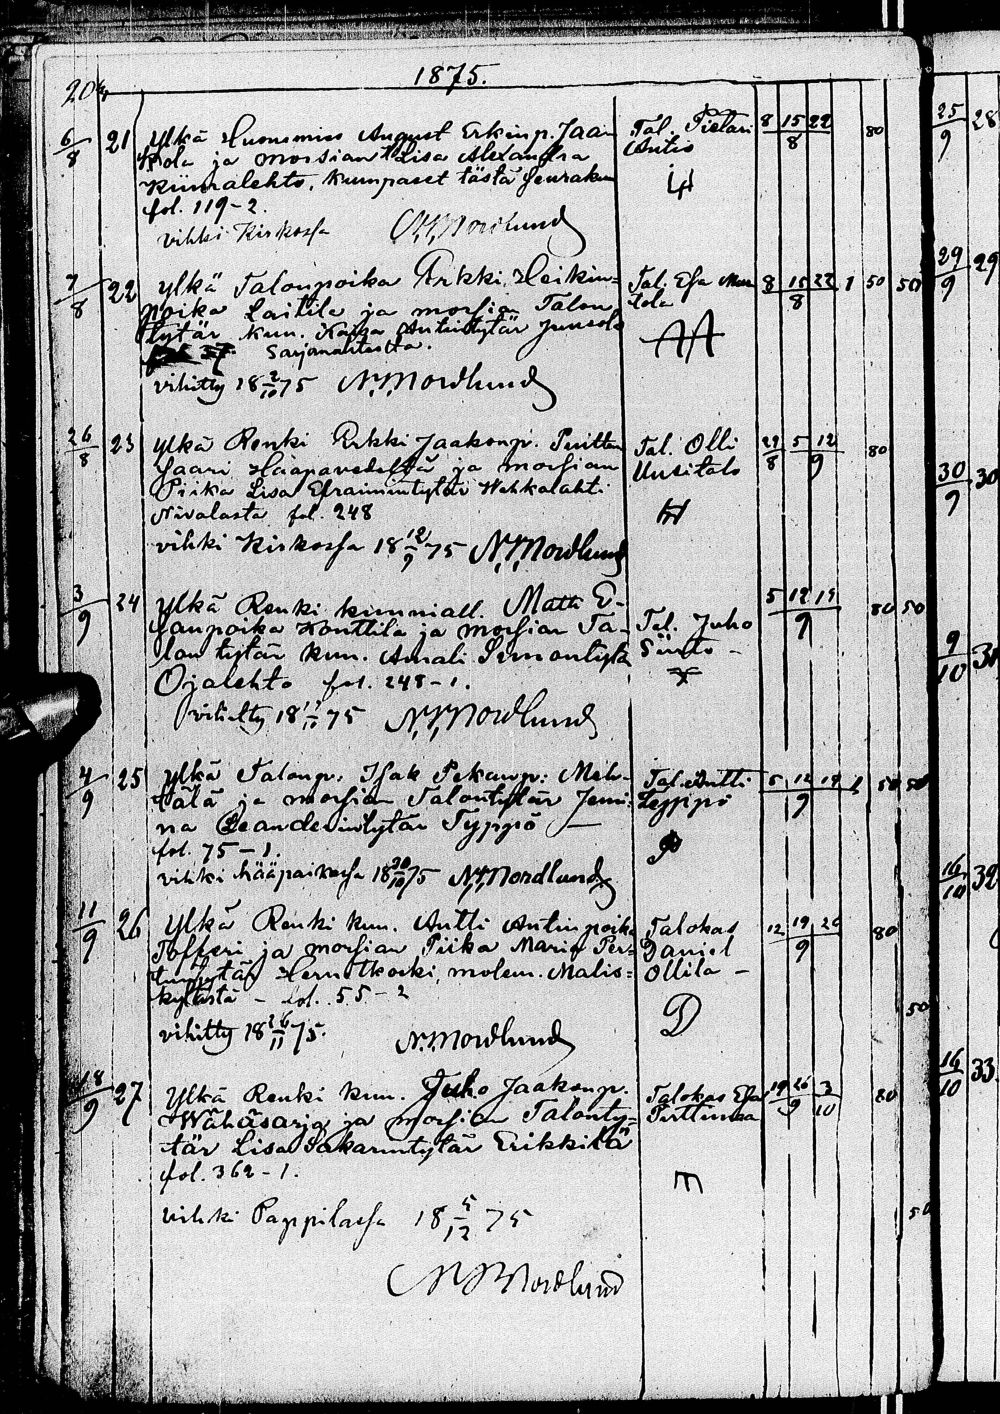 1875.
6/8 21 Ylkä Huonemies August Erkinp. Jaa
kola ja morsian Lisa Alexandra
Kiimalehto, kumpaset tästä Seuraku
fol. 119-2.
vihki Kirkossa N.N. Nordlund
Tal. Pietari
Antio
8 15 22
8
80
7/8 22 Ylkä Talonpoika Erkki Heikin-
poika Laitila ja morsian Talon
tytär kun. Kaisa Antintytär Junsola
Sarjanahtestta.
vihitty 18 2/10 75 N.N. Nordlund
Tal. Esa
tola
8 15 22 1 50 50
8
26/8 23 Ylkä Renki Erkki Jaakonp. Puitte
Saari Haapavedeltä ja morsian
Piika Lisa Efraimintytär Wehkalahti
Nivalasta fol. 248
vihki Kirkossa 18 12/9 75 N.N. Nordlund
Tal. Olli
Uusitalo
29 5 12
8 9
80
3/9 24 Ylkä Renki kunniall. Matti E-
sanpoika Konttila ja morsian Ta-
lon tytär kun. Amali Simontytä
Ojalehto fol. 248-1.
vihitty 18 75 N.N. Nordlund
Tal. Juho
Siinto -
5 12 19
9
80 50
4/9 25 Ylkä Talonp. Isak Pekanp: Meh-
tälä ja morsian Talontytär Jemi-
na Leanderintytär Typpö —
fol. 75-1.
vihki hääpaikassa 18 30/10 75 N.N. Nordlund
Tal. Antti
Zeppö
5 12 19 1 50 50
9
11/9 26 Ylkä Renki kun. Antti Antinpoika
Tofferi ja morsian Piika Maria Per-
Hernetkoski, molem. Malis=
kylästä - fol. 55-2
vihitty 18 26/11 75. N. Nordlund
Talokas
Daniel
Ollila -
D
12 19 26
9
80
50
18/9 27 Ylkä Renki kun. Juho Jaakonp.
Wähäsarja ja morsian Talonty-
tär Lisa Sakarintytär Erikkilä
fol. 362-1.
vihki Pappilassa 18 5/12 75
N N Nordlund
Talokas Esa
Pirttimaa
19 26 3
9 10
80
50
25/9 28
29/9 29
30/9 30
9/10
16/10 32
16/10 33